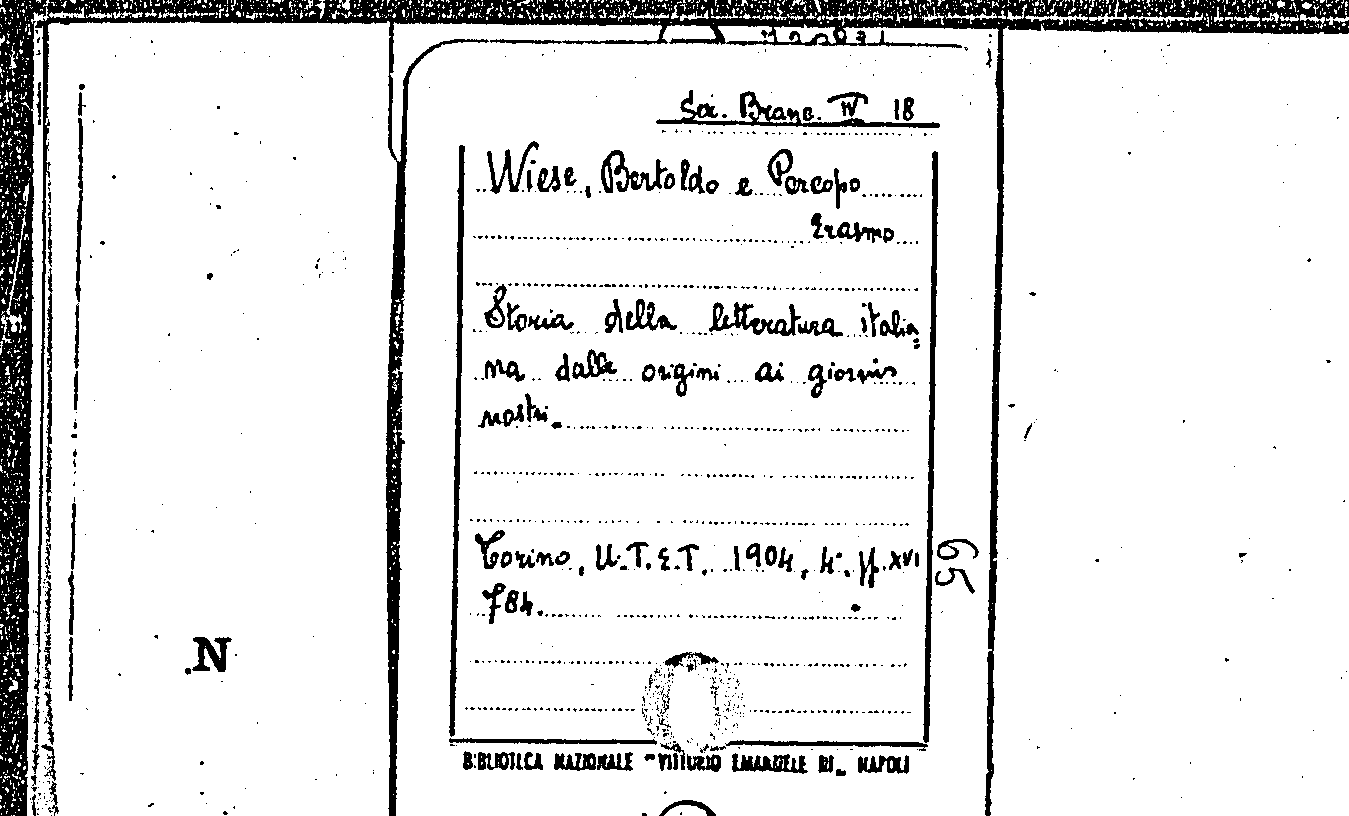 Sez. Branc. IV 18
Wiese, Bertoldo e Percopo
Erasmo
Storia della letteratura italia=
na dalle origini ai giorni
nostri.
Torino, U.T.E.T. 1904, 4°. pp. XVI
784.
65
N
BIBLIOTECA NAZIONALE "VITTORIO EMANUELE III" NAPOLI